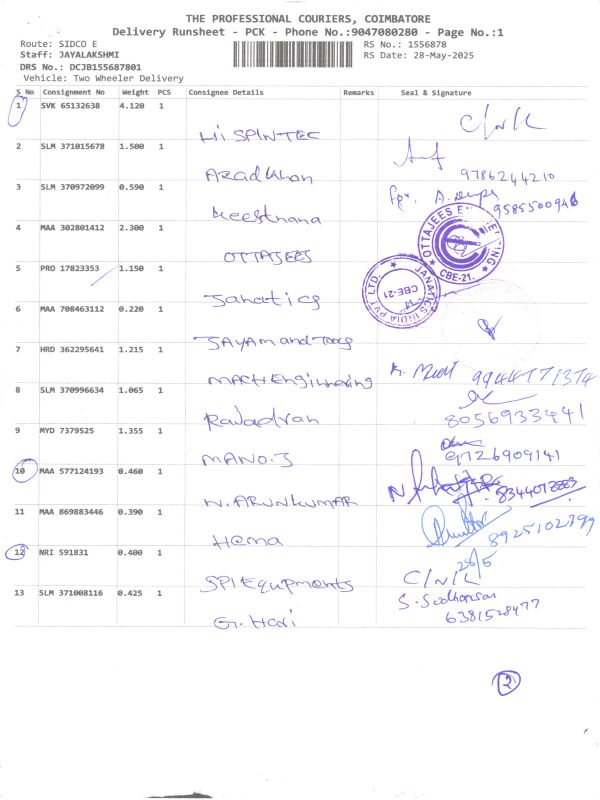 THE PROFESSIONAL COURIERS, COIMBATORE
Delivery Runsheet - PCK - Phone No.:9047080280 - Page No.:1
Route: SIDCO E
RS No.: 1556878
Staff: JAYALAKSHMI
RS Date: 28-May-2025
DRS No.: DCJB155687801
Vehicle: Two Wheeler Delivery
S No Consignment No Weight PCS Consignee Details Remarks Seal & Signature
1 SVK 65132638 4.120 1
Hi SPINTEC C/N/L
2 SLM 371015678 1.500 1
Azad Khan 9786244210
3 SLM 370972099 0.590 1
9585500946
4 MAA 302801412 2.300 1
OTTAJEES
CBE-21.
5 PRO 17823353 1.150 1
Janatics
JANATICS INDIA PVT LTD.
CBE-21
6 MAA 708463112 0.220 1
JAYAM and Tools
7 HRD 362295641 1.215 1
MACH Enginnering 9944771374
8 SLM 370996634 1.065 1
8056933441
9 MYD 7379525 1.355 1
MANO.J 9726909141
10 MAA 577124193 0.460 1
N. ARUNKUMAR
11 MAA 869883446 0.390 1
Hema 8925102799
28/5
12 NRI 591831 0.400 1
SPI Equpments C/N/L
13 SLM 371008116 0.425 1
G. Hari
6381528477
2